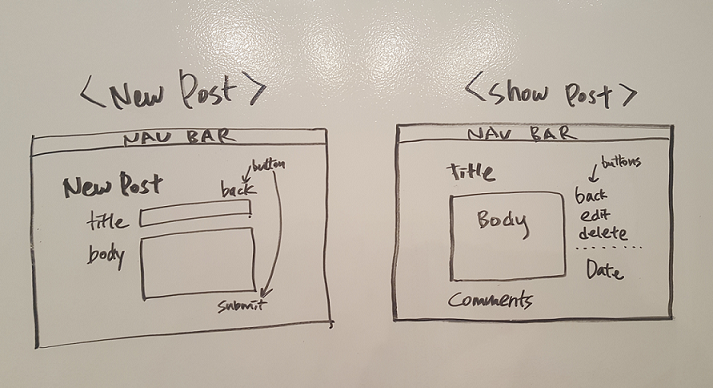 <New Post>
NAV BAR
button
New Post
back
title
body
submit
<Show Post>
NAV BAR
title
buttons
back
edit
delete
Body
Date
Comments